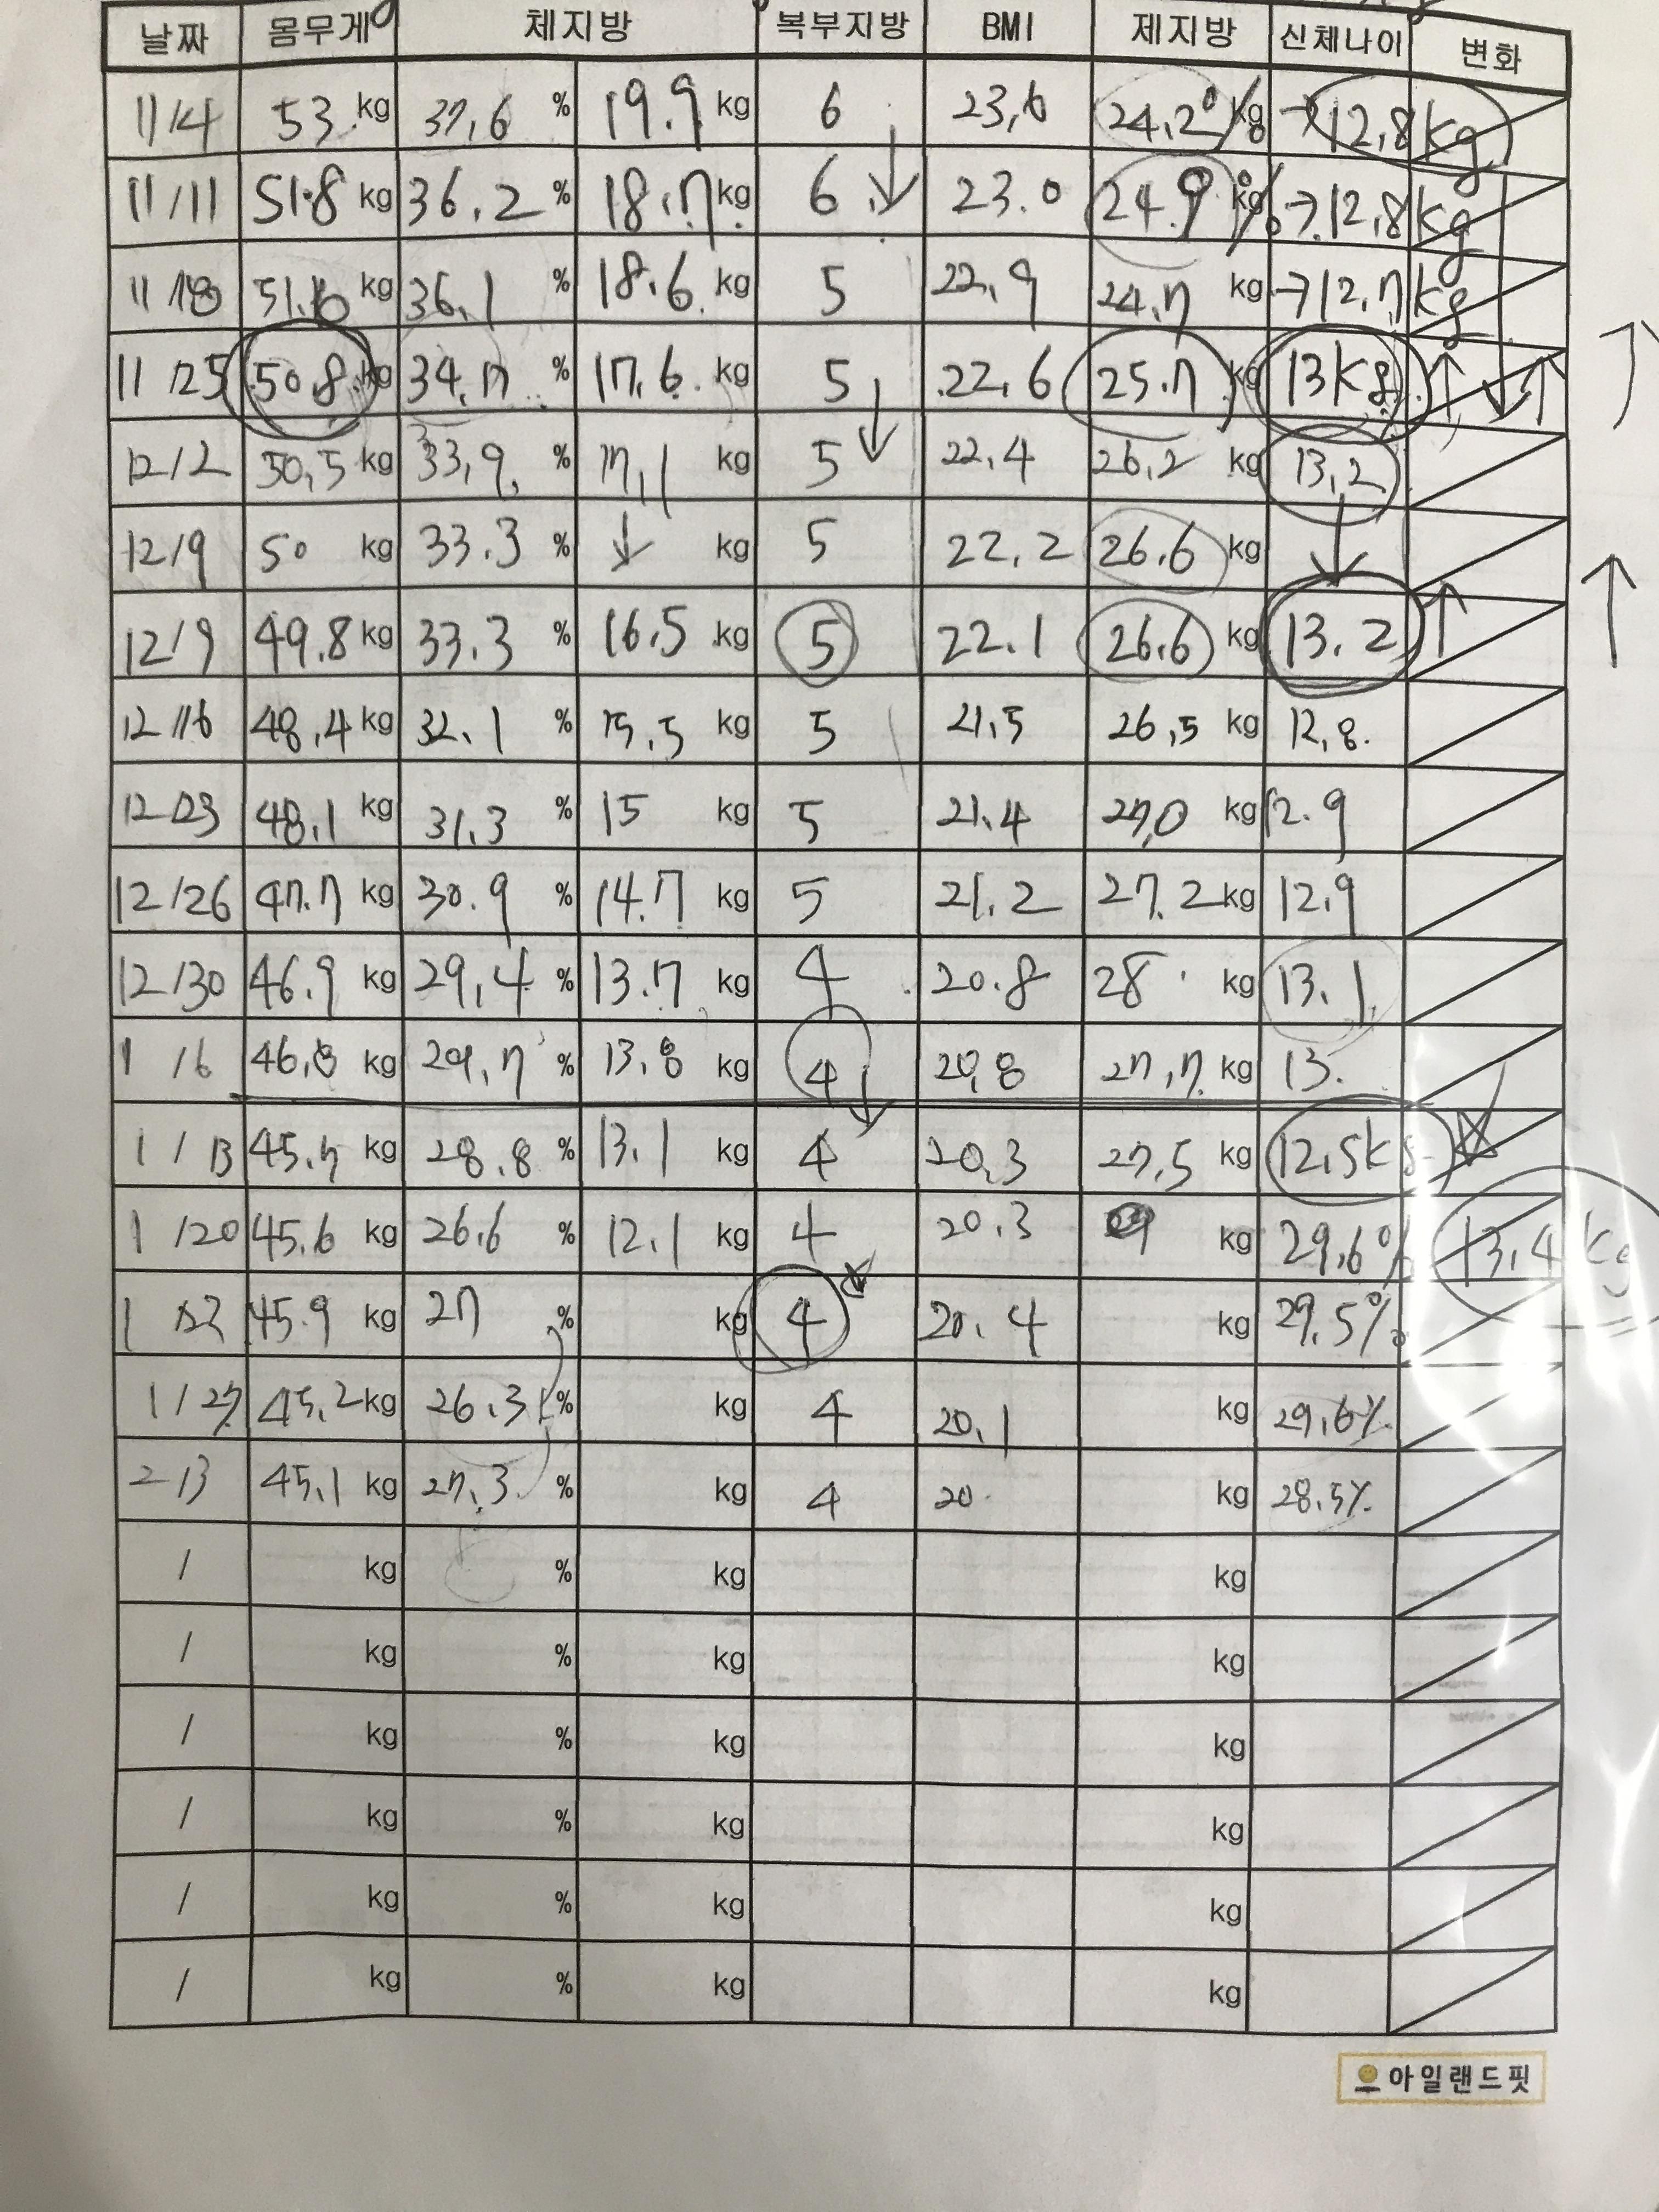 날짜 몸무게 체지방 복부지방 BMI 제지방 신체나이 변화
11/4 53 kg 37,6 % 19.9 kg 6 23,6 24,2% kg →12,8kg
11/11 51.8 kg 36.2 % 18.7 kg 6 23.0 24.9% kg →12,8kg
11/18 51.6 kg 36.1 % 18.6 kg 5 22,9 24.7 kg →12,7kg
11/25 50.8 kg 34.7 % 17,6 kg 5 22,6 25.7 kg 13kg ↑ ↓ ↑
12/2 50,5 kg 33,9 % 17,1 kg 5 22,4 26,2 kg 13,2
12/9 50 kg 33.3 % ↓ kg 5 22,2 26.6 kg ↓
12/9 49.8 kg 33.3 % 16.5 kg 5 22.1 26.6 kg 13.2 ↑
12/16 48,4 kg 32.1 % 15,5 kg 5 21,5 26,5 kg 12,8
12/23 48,1 kg 31,3 % 15 kg 5 21.4 27,0 kg 12.9
12/26 47.7 kg 30.9 % 14.7 kg 5 21.2 27.2 kg 12,9
12/30 46.9 kg 29,4 % 13.7 kg 4 20.8 28 kg 13.1
1/6 46,8 kg 29,7 % 13,8 kg 4 20,8 27,7 kg 13
1/13 45.5 kg 28.8 % 13.1 kg 4 20,3 27,5 kg 12,5kg
1/20 45.6 kg 26,6 % 12,1 kg 4 20.3 kg 29,6% 13,4kg
1 45.9 kg 27 % kg 4 20.4 kg 29,5%
1/27 45,2 kg 26.3 % kg 4 20,1 kg 29,6%
2/3 45,1 kg 27,3 % kg 4 20 kg 28.5%
/ kg % kg kg
/ kg % kg kg
/ kg % kg kg
/ kg % kg kg
/ kg % kg kg
/ kg % kg kg
아일랜드핏